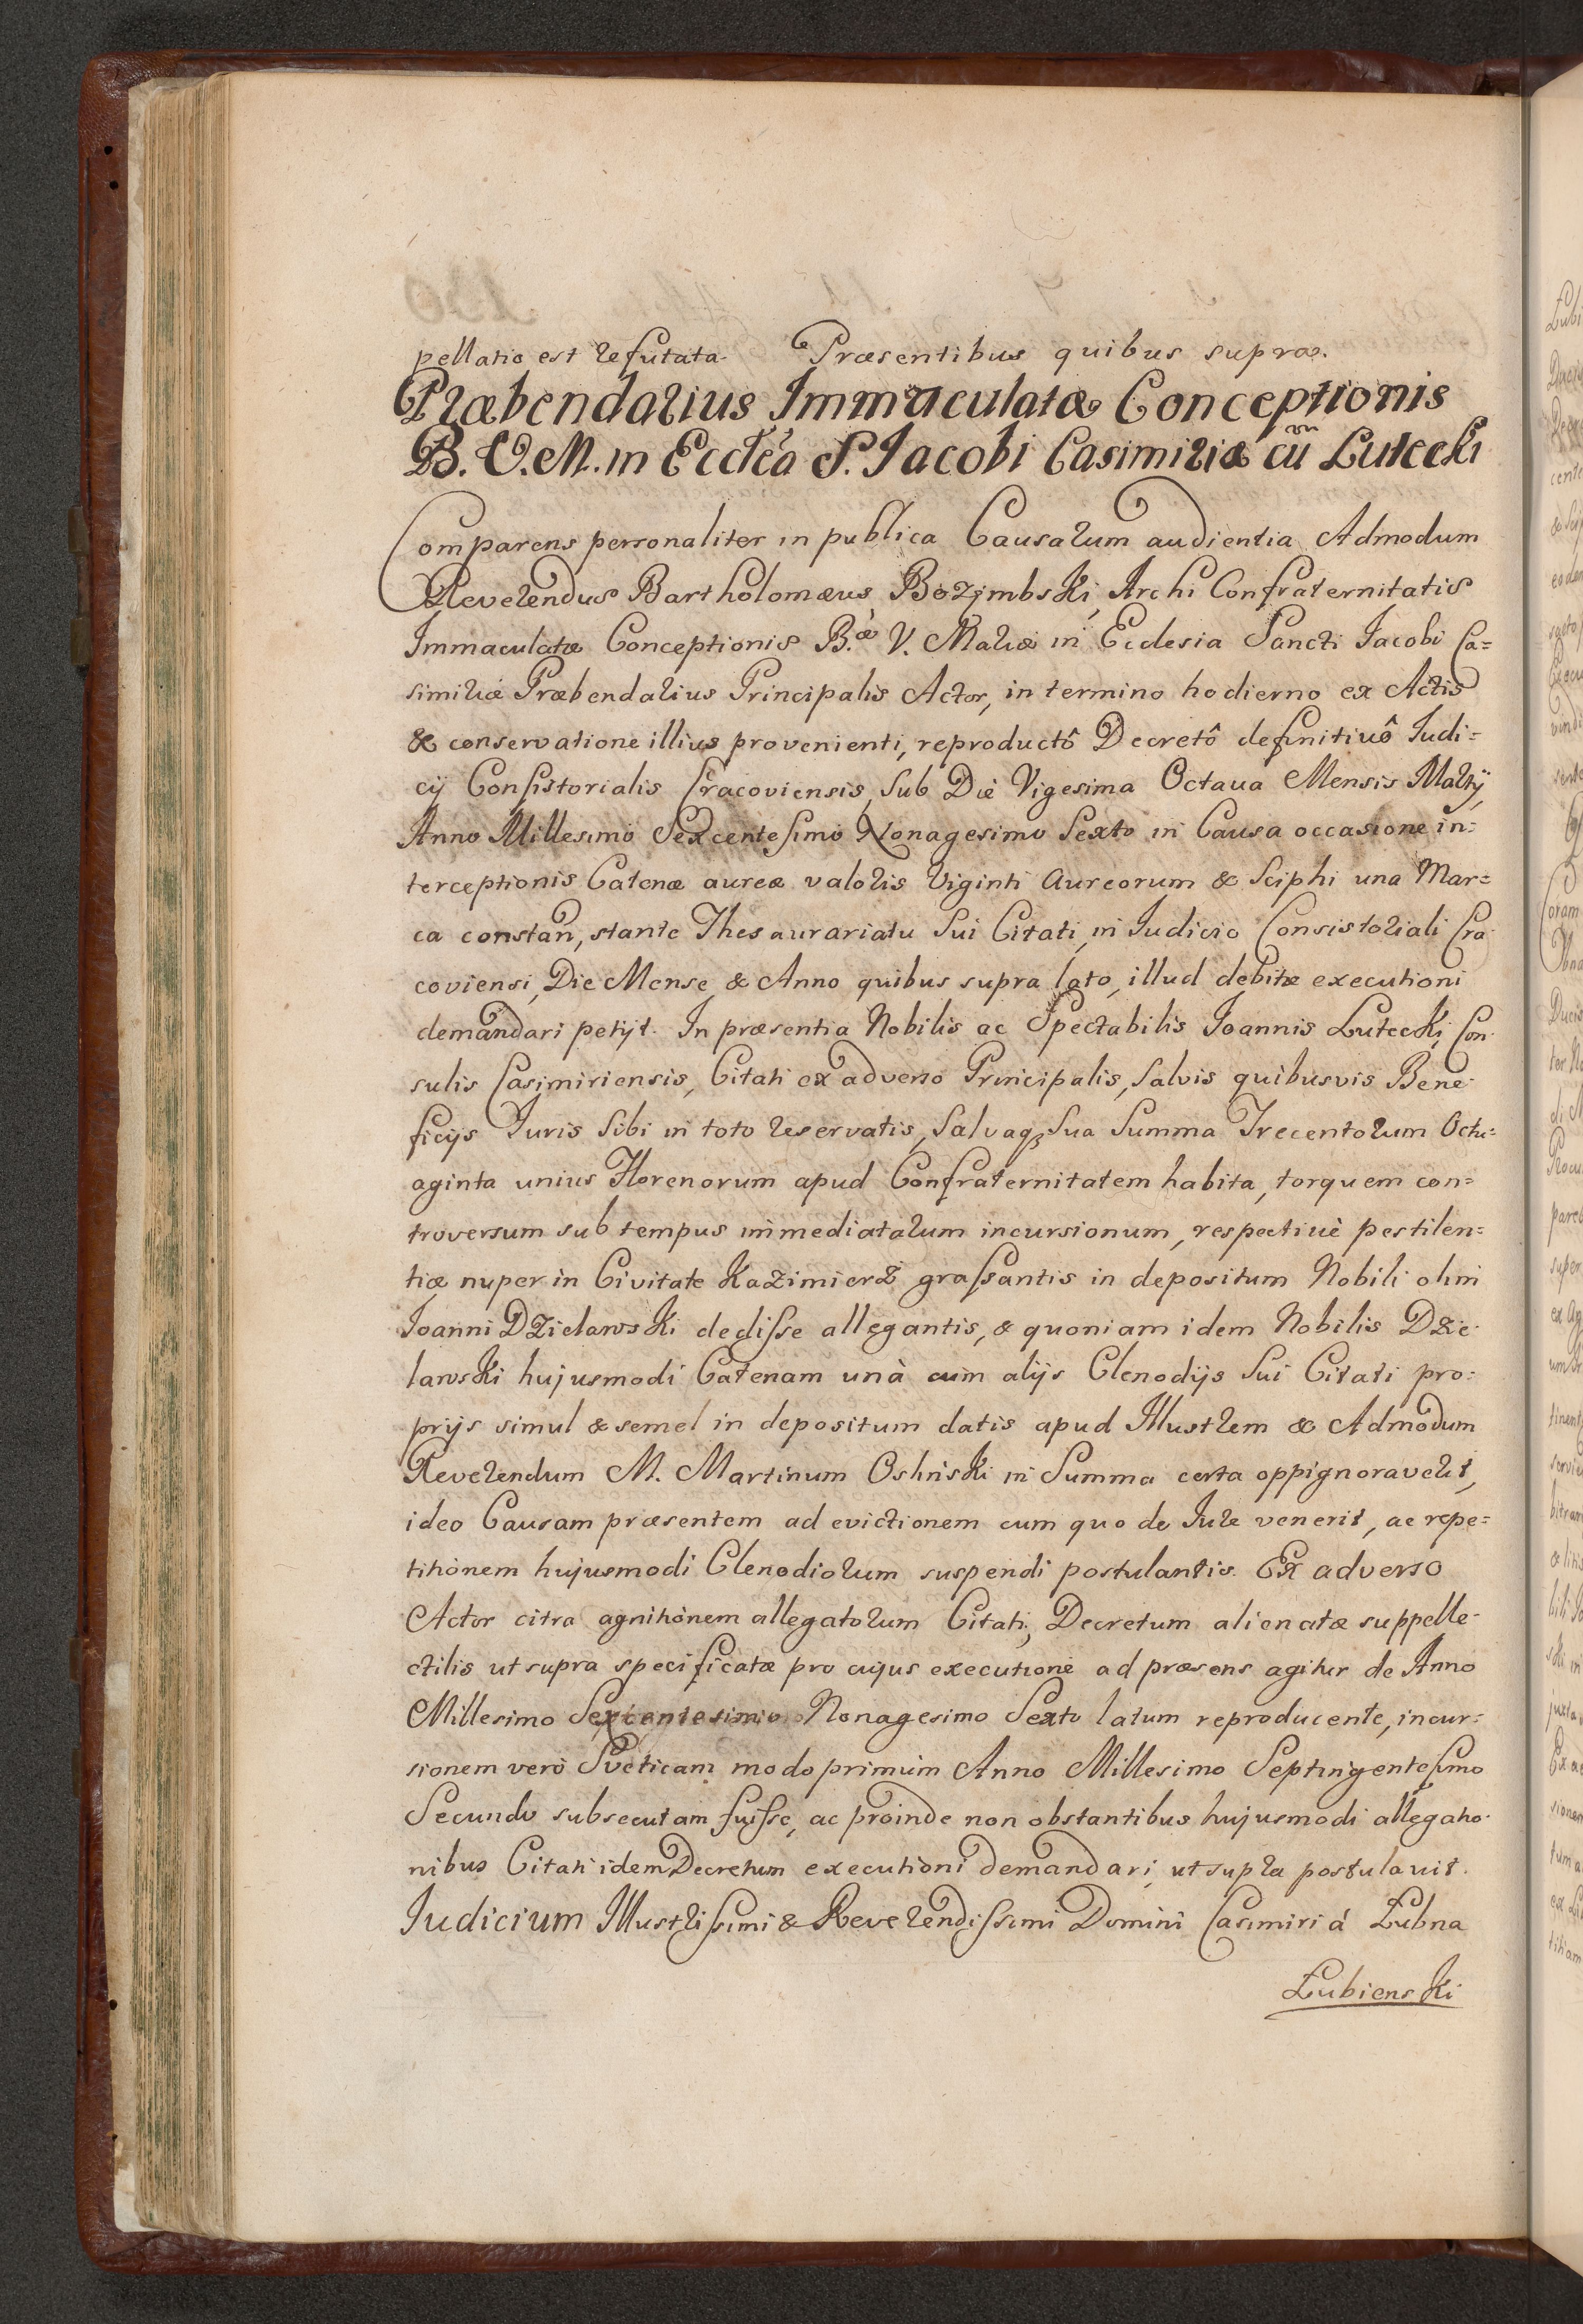 pellatio est refutata. Præsentibus quibus supra.
Præbendarius Immaculatæ Conceptionis
B. V. M. in Eccl̃ea S. Jacobi Casimiriæ cũ Lutecki
Comparens personaliter in publica Causarum audientia Admodum
Reverendus Bartholomæus Bozymbski, Archi Confraternitatis
Immaculatæ Conceptionis B.æ V. Mariæ in Ecclesia Sancti Iacobi Ca=
simiriæ Præbendarius Principalis Actor, in termino hodierno ex Actis
& conservatione illius provenienti, reproductô Decretô definitivô Iudi=
cij Consistorialis Cracoviensis, Sub Die Vigesima Octava Mensis Martij,
Anno Millesimo Sexcentesimo Nonagesimo Sexto in Causa occasione in=
terceptionis Catenæ aureæ valoris Viginti Aureorum & Sciphi una Mar=
ca constan̄, stante Thesaurariatu Sui Citati, in Iudicio Consistoriali Cra
coviensi, Die Mense & Anno quibus supra lato, illud debitæ executioni
demandari petijt. In præsentia Nobilis ac Spectabilis Ioannis Lutecki, Con
sulis Casimiriensis, Citati ex adverso Principalis, Salvis quibusvis Bene
ficijs Iuris Sibi in toto reservatis, Salvaq₃ Sua Summa Trecentorum Octu=
aginta unius Florenorum apud Confraternitatem habita, torquem con=
troversum sub tempus immediatarum incursionum, respectivè pestilen=
tiæ nuper in Civitate Kazimierz grassantis in depositum Nobili olim
Ioanni Dzielawski dedisse allegantis, & quoniam idem Nobilis Dzie
lawski hujusmodi Catenam unà cum alijs Clenodijs Sui Citati pro=
prijs simul & semel in depositum datis apud Illustrem & Admodum
Reverendum M. Martinum Oslinski in Summa certa oppignoraverit,
ideo Causam præsentem ad evictionem cum quo de Iure venerit, ac repe=
titionem hujusmodi Clenodiorum suspendi postulantis. Ex adverso
Actor citra agnitionem allegatorum Citati, Decretum alienatæ suppelle=
ctilis ut supra specificatæ pro cujus executione ad præsens agitur de Anno
Millesimo Sexcentesimo Nonagesimo Sexto latum reproducente, incur=
sionem verò Sveticam modo primùm Anno Millesimo Septingentesimo
Secundo subsecutam fuisse, ac proinde non obstantibus hujusmodi allegatio
nibus Citati idem Decretum executioni demandari, ut supra postulavit.
Iudicium Illustrissimi & Reverendissimi Domini Casimiri à Łubna
Łubienski